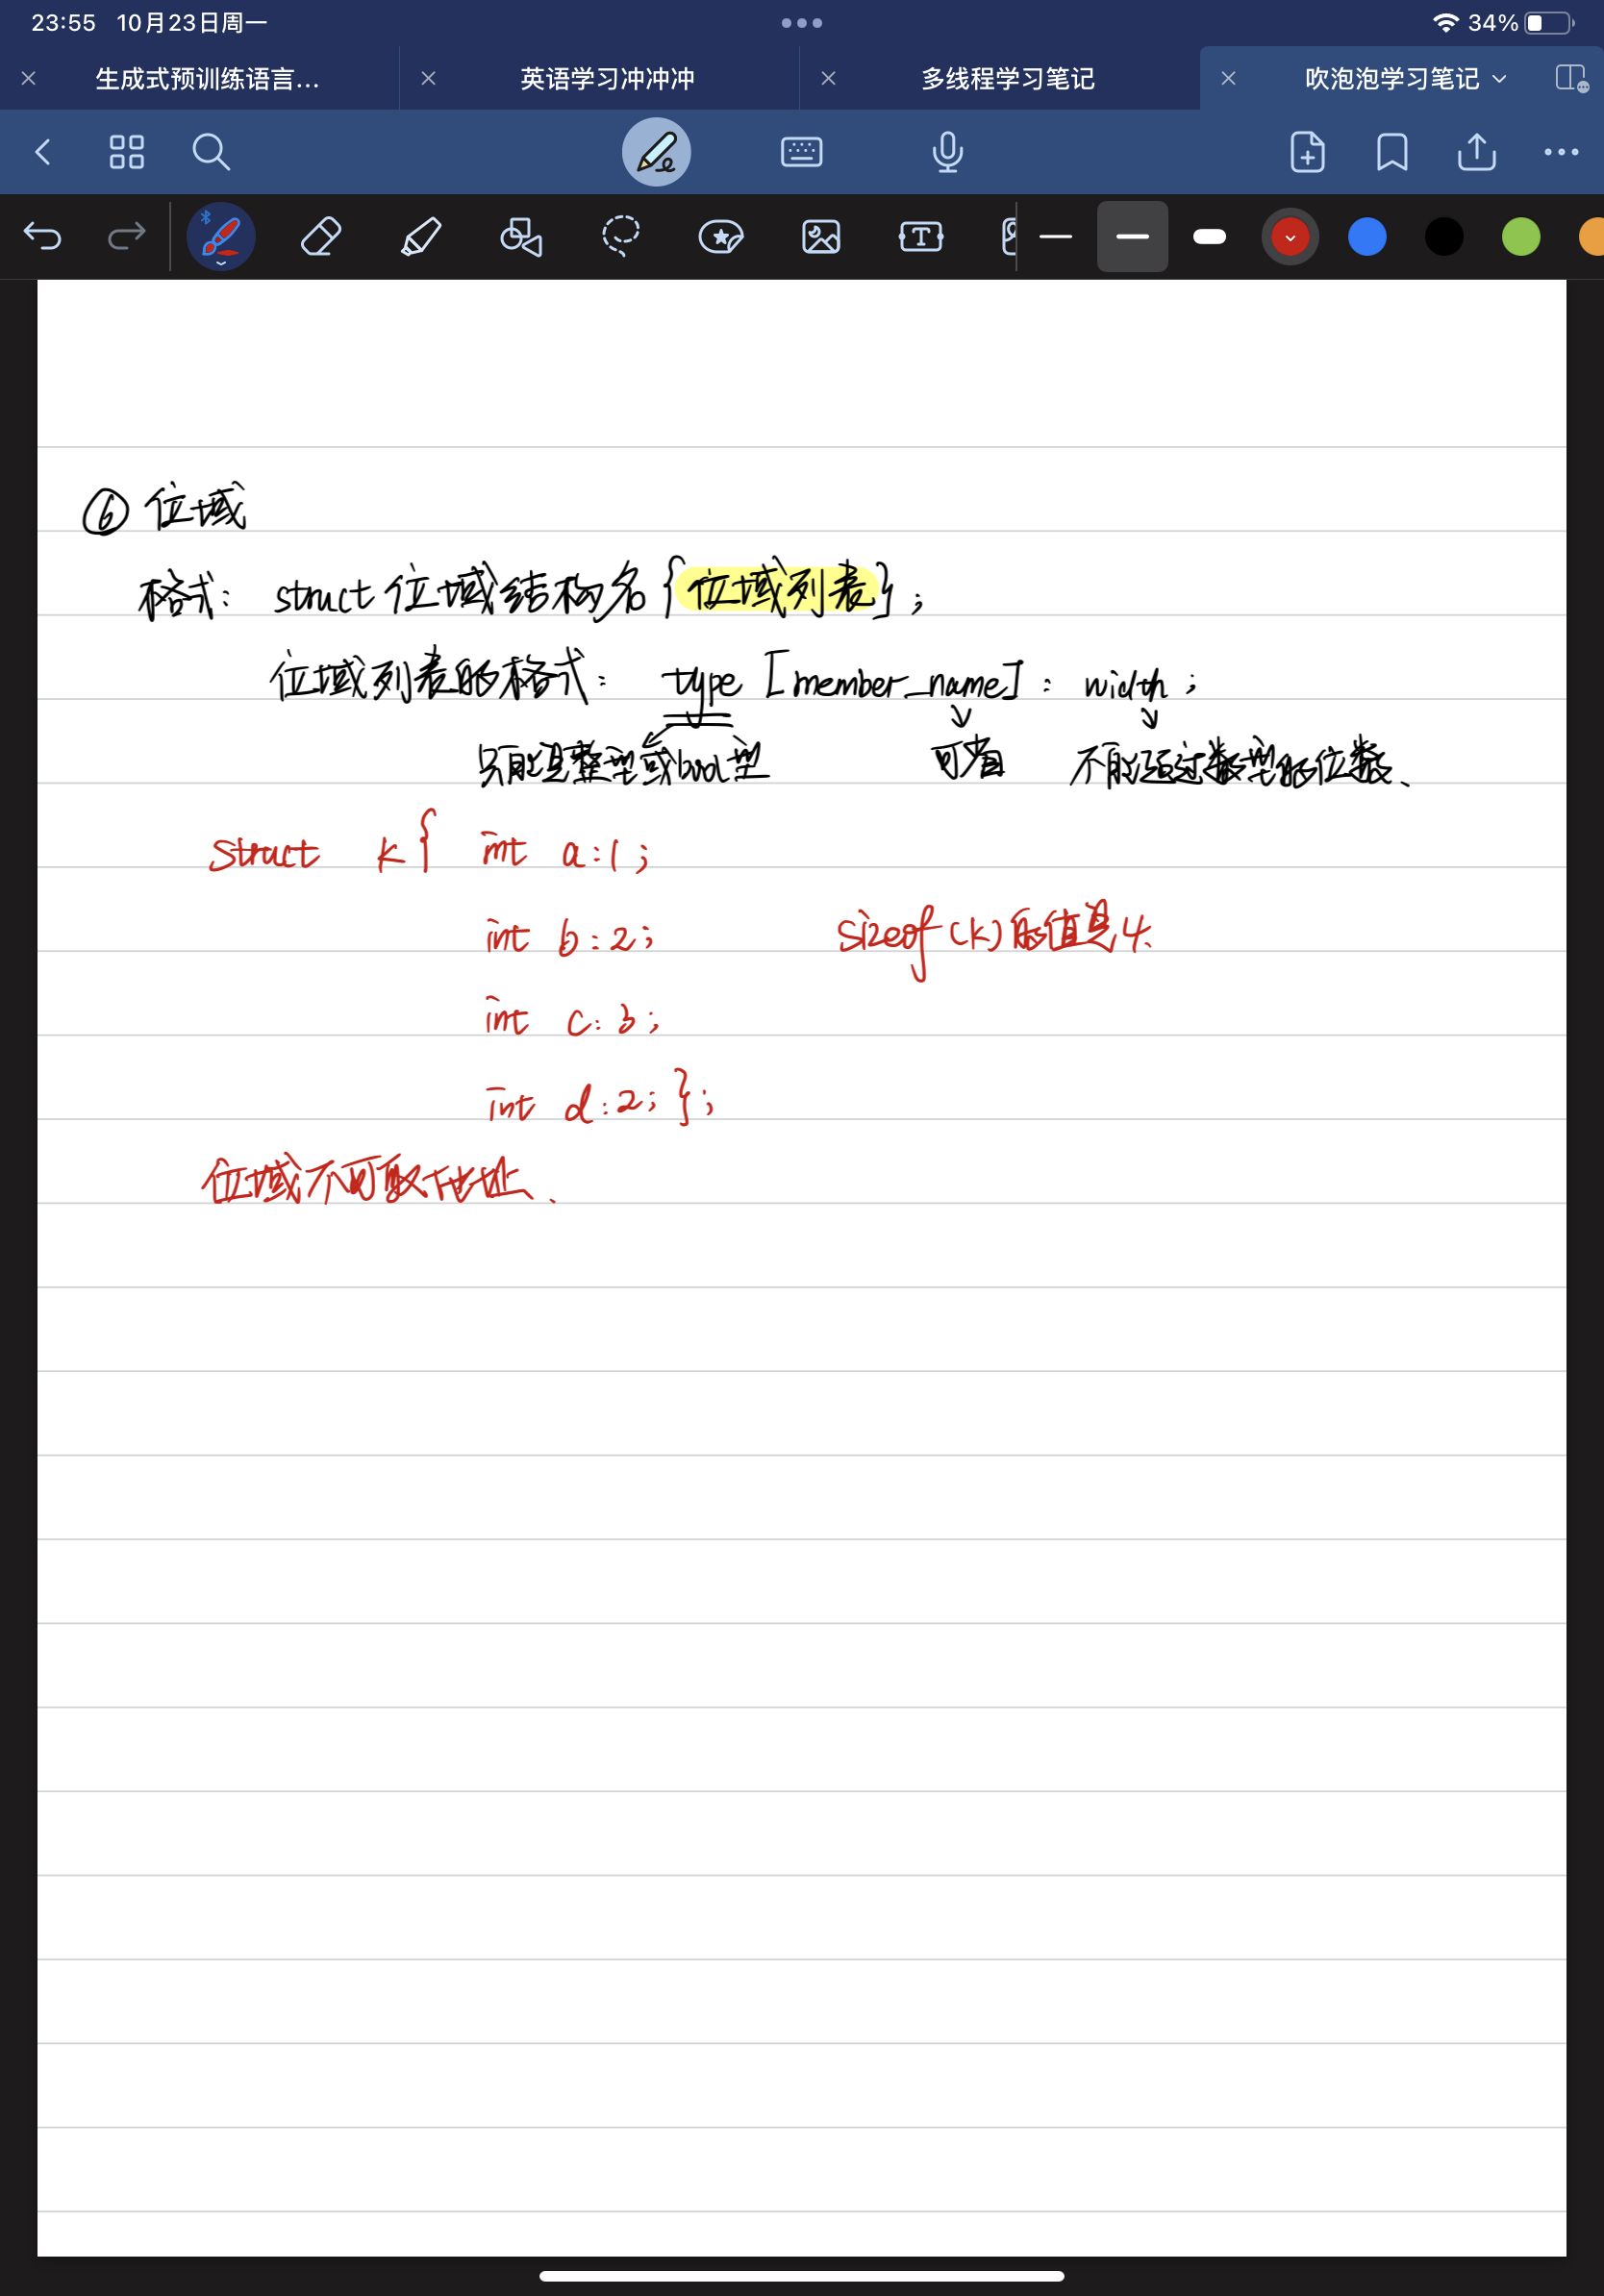 23:55 10月23日周一
34%
生成式预训练语言... 英语学习冲冲冲 多线程学习笔记 吹泡泡学习笔记
⑥ 位域
格式: struct 位域结构名{位域列表};
位域列表的格式: type [member_name] : width ;
只能是整型或bool型 可省 不能超过类型的位数、
struct k{ int a:1;
int b:2; sizeof(k)的值是4、
int c:3;
int d:2; };
位域不可取地址、